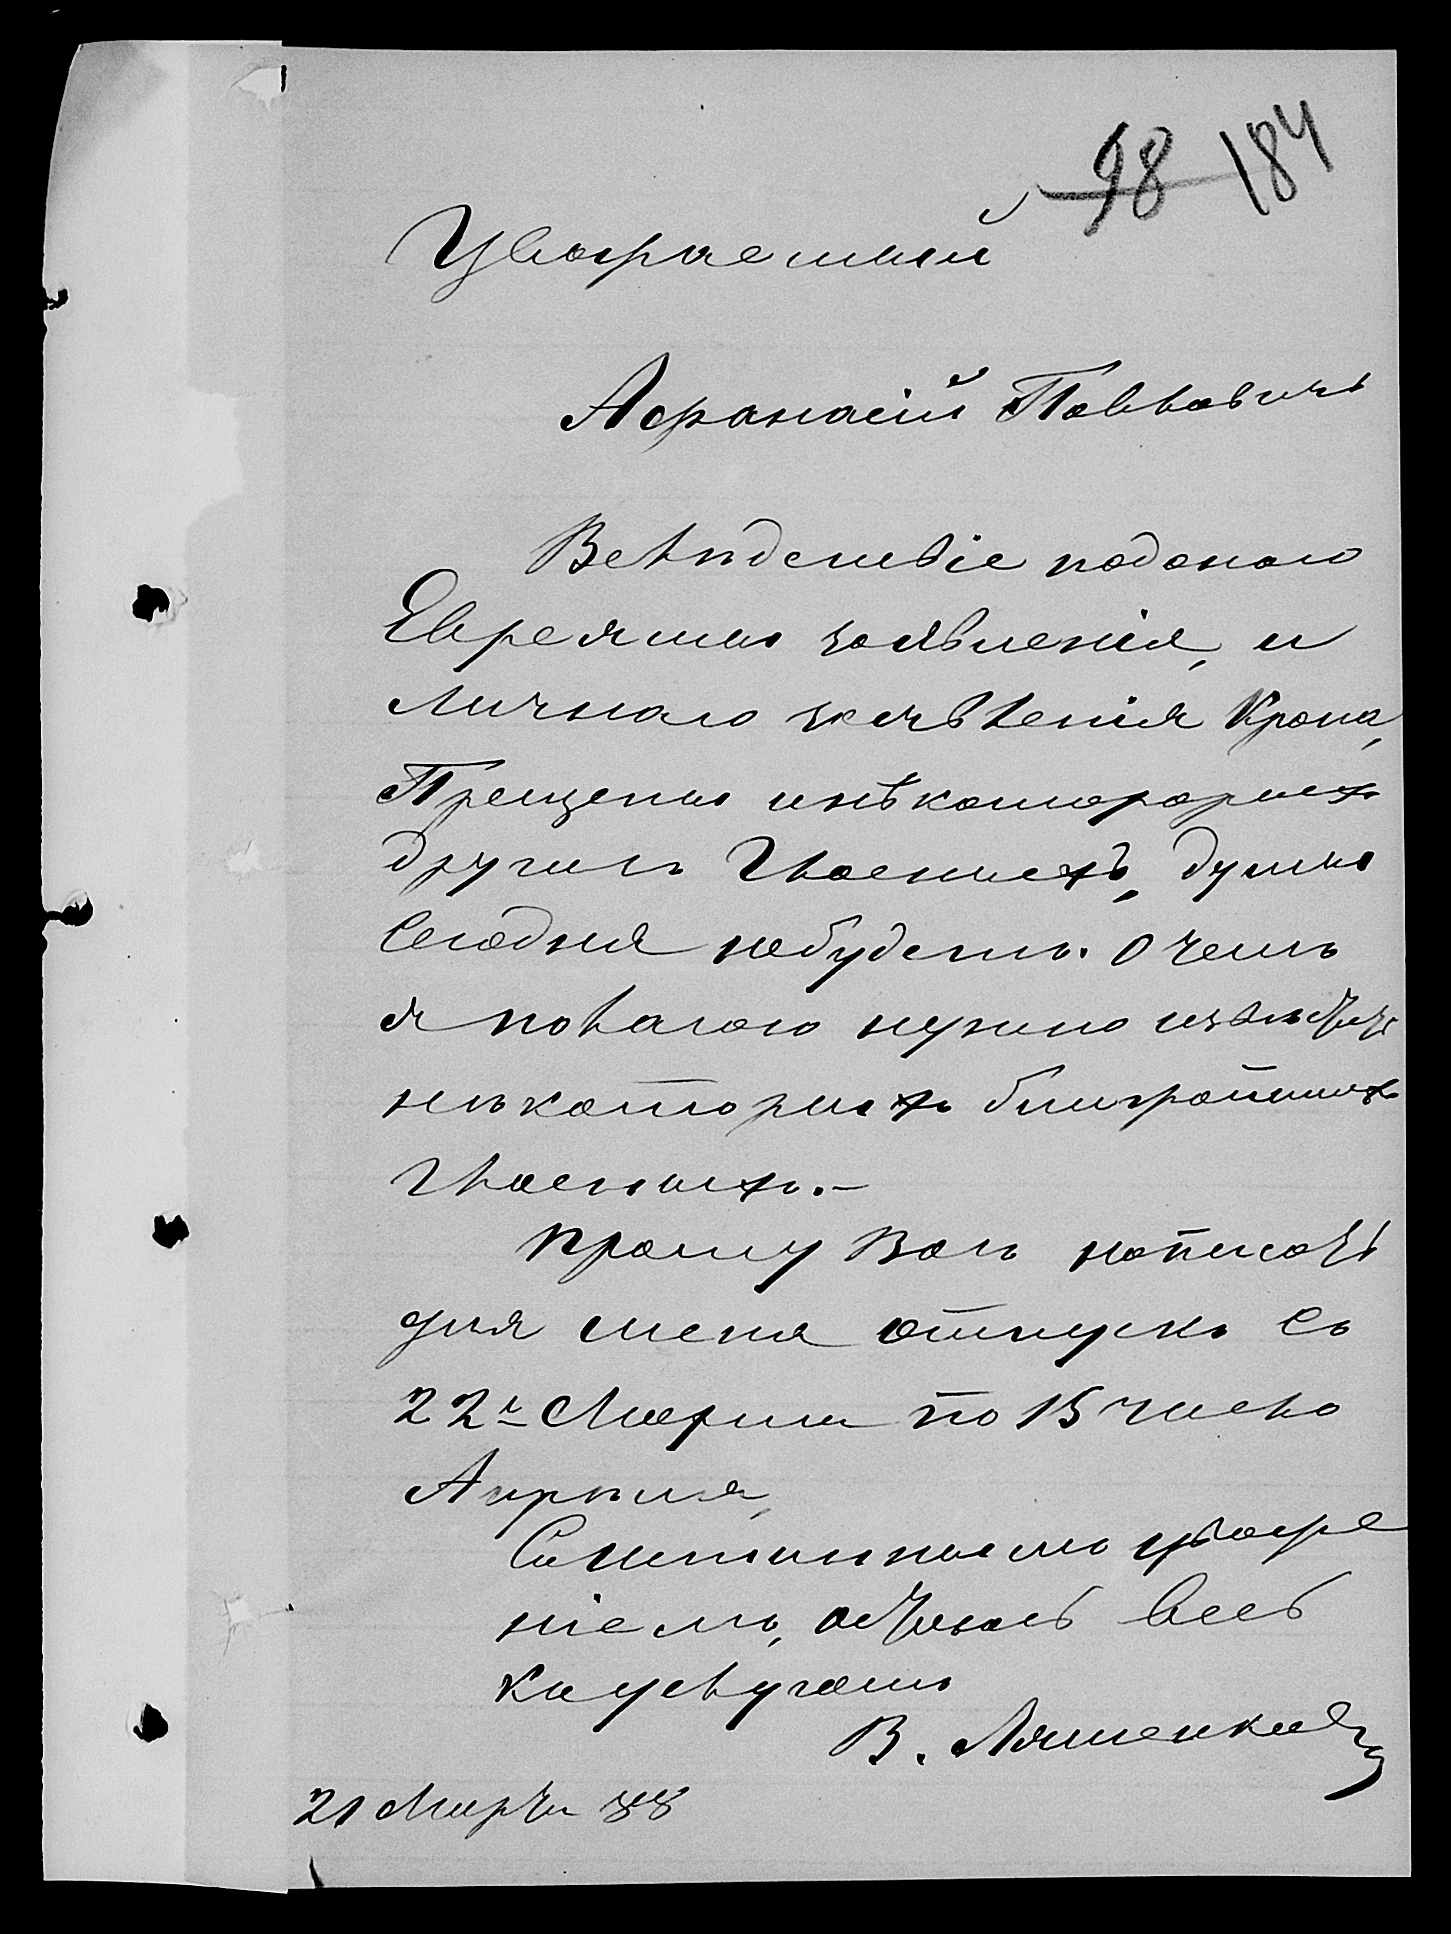 98 184
Уважаемый
Афанасій Павловичъ
Вслѣдствіе поданаго
Евреями заявленія, и
личнаго заявленія Крона,
Прещепы инѣкоторорыхъ
другихъ Гласныхъ, думы
Сегодня небудетъ. О чемъ
я полагаю нужно извѣстить
нѣкоторыхъ ближайшихъ
Гласныхъ.-
Прошу Васъ написать
для меня отпускъ съ
22го Марта по 15 число
Апрѣля,
Съ истиннымъ уваже
ніемъ, остаюсь Весь
къ услугамъ
В. Ляшенко
21 Марта 88